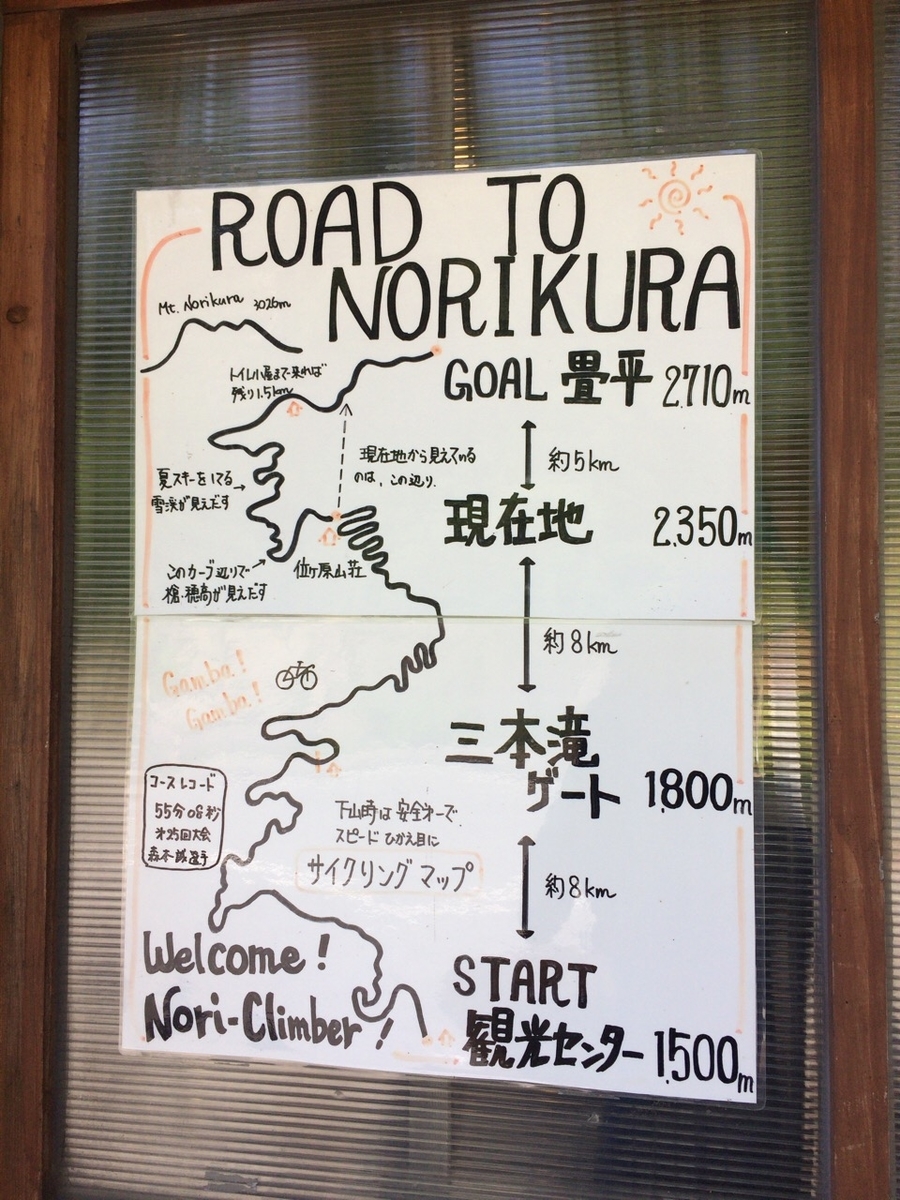 ROAD TO
NORIKURA
Mt. Norikura 3026m
GOAL 畳平 2,710m
トイレ小屋まで来れば
残り1.5km
約5km
現在地から見えている
のは、この辺り.
夏スキーをしてる
雪渓が見えだす
現在地 2,350m
このカーブ辺りで
槍・穂高が見えだす
位ヶ原山荘
約8km
Gamba!
Gamba!
三本滝
ゲート 1,800m
コースレコード
55分08秒
オ25回大会
森本誠選手
下山時は安全才一で
スピードひかえ目に
サイクリングマップ
約8km
Welcome!
Nori-Climber!
START
観光センター 1,500m